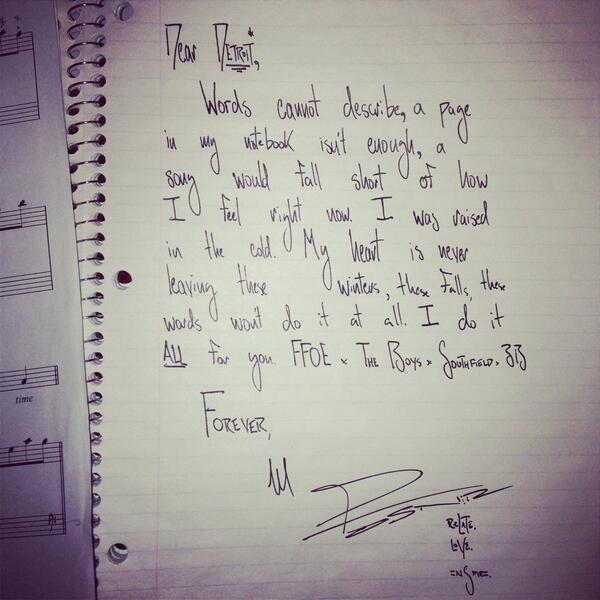 Dear DETROIT,*
Words cannot describe, a page
in my notebook isn't enough, a
song would fall short of how
I feel right now. I was raised
in the cold. My heart is never
leaving these winters, these falls, these
words won't do it at all. I do it
ALL for you. FFOE x THE BOYS x SOUTHFIELD x 313
FOREVER,
RELATE.
LOVE.
time